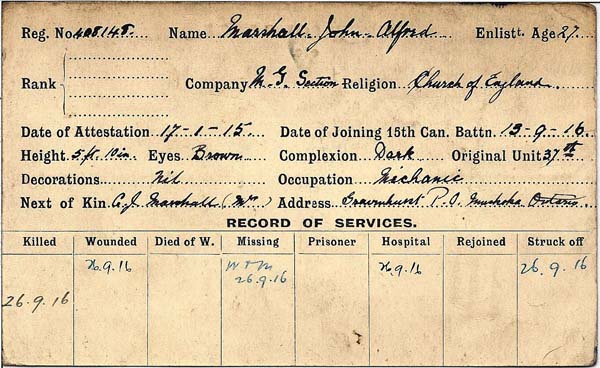 Reg. No. 408148. Name Marshall. John. Alfred Enlistt. Age 27.
Rank Company M. G. Section Religion Church of England.
Date of Attestation 17-1-15. Date of Joining 15th Can. Battn. 13-9-16.
Height 5 ft. 10 in. Eyes Brown Complexion Dark Original Unit 37th
Decorations Nil Occupation Michanic
Next of Kin C. J. Marshall (Mr) Address Gravenhurst P.O. Muskoka Ontario
RECORD OF SERVICES.
Killed Wounded Died of W. Missing Prisoner Hospital Rejoined Struck off
26.9.16 W & M 26.9.16 26.9.16
26.9.16
26.9.16